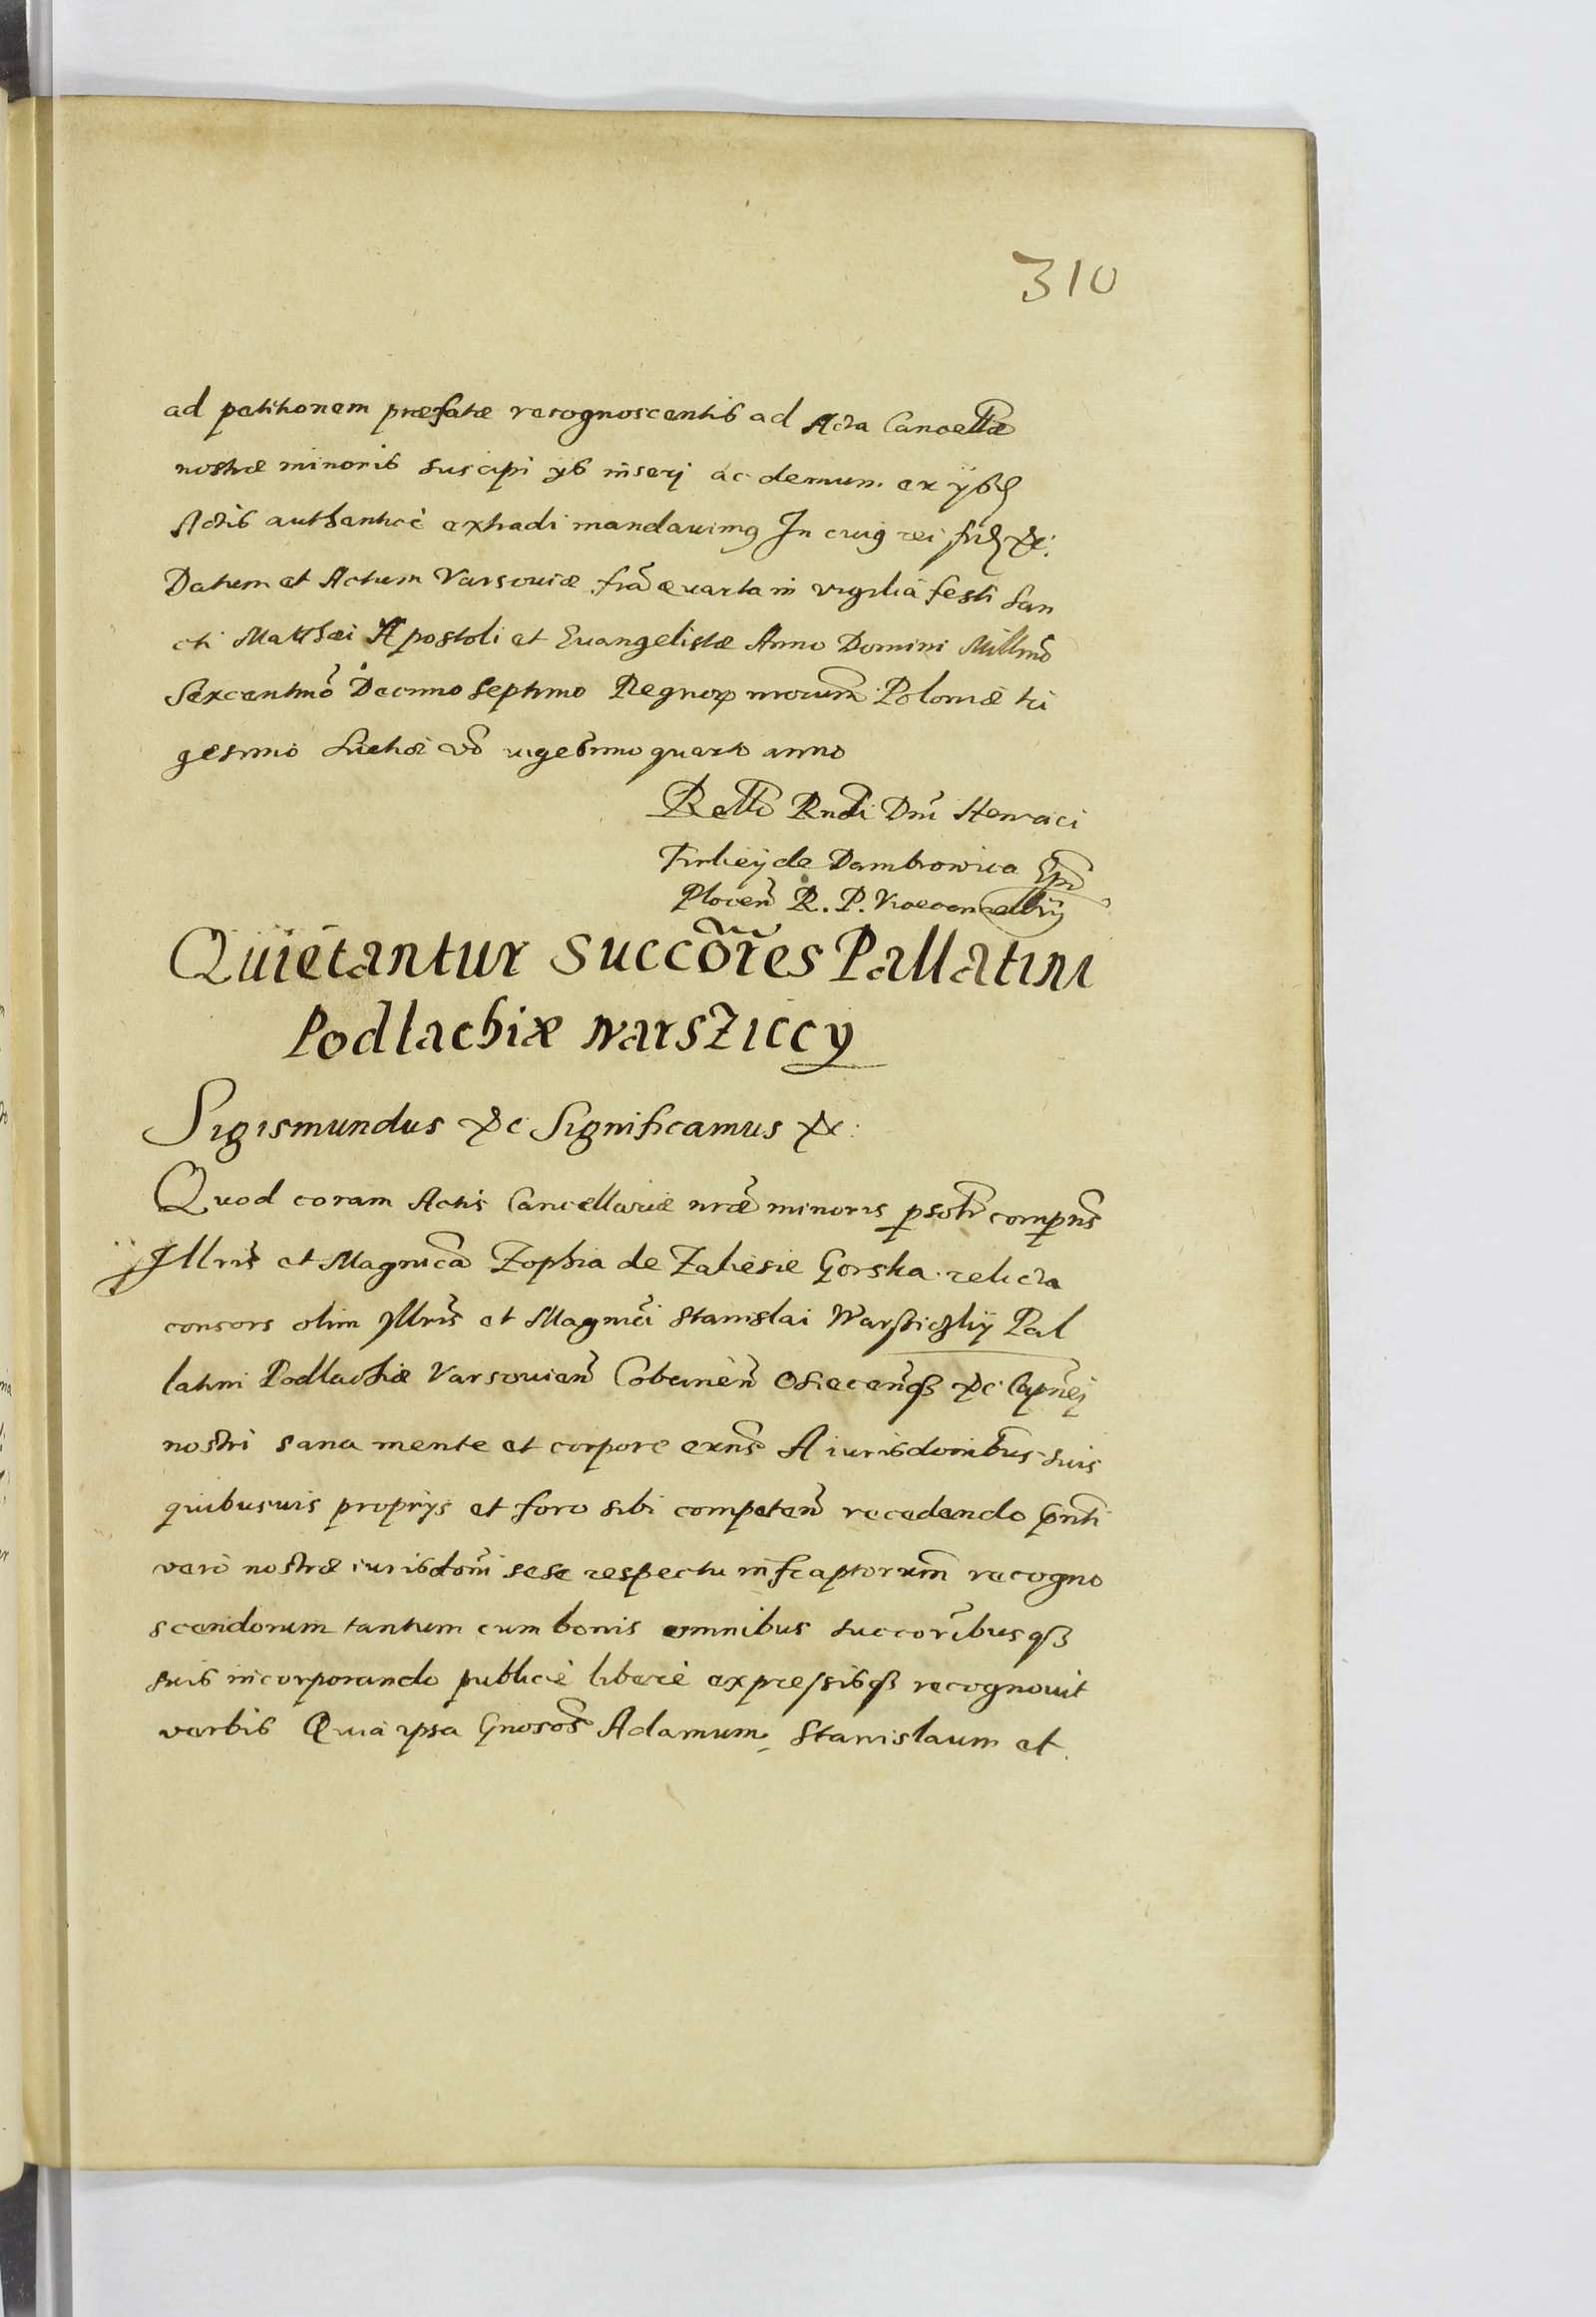 310
ad petitionem præfatæ recognoscentis ad Acta Cancellæ
nostræ minoris suscipi ijs inserj ac demum ex ijsd
Actis authenticè extradi mandauimus In cuius rei fid &c:
Datum et Actum Varsouiæ fria quarta in vigilia festi San
cti Matthæi Apostoli et Euangelistæ Anno Domini Millmo
Sexcentmo Decimo Septimo Regnorum nrorum Poloniæ tri
gesimo Suetiæ vo vigesimo quarto anno
Rello Rndi Dni Henrici
Firlieÿ de Dambrowica Epi
Plocen R. P. Vicecancellrij
Quietantur Succores Pallatini
Podlachiæ warsziccy
Sigismundus &c Significamus &c:
Quod coram Actis Cancellariæ nræ minoris psolr comprns
Illris et Magnica Zophia de Zaliesie Gorska relicta
consors olim Illris et Magnici Stanislai Warszickij Pal
latini Podlachiæ Varsouien Cobrinen Osiecenq &c Capnei
nostri sana mente et corpore exns A iurisdonibus suis
quibusuis proprijs et foro sibi competen recedendo pnti
vero nostræ iurisdoni sese respectu infraptorum recogno
scendorum tantum cum bonis omnibus succoribusq
suis incorporando publicè liberè expressisq recognouit
verbis Quia ipsa Gnosos Adamum, Stanislaum et